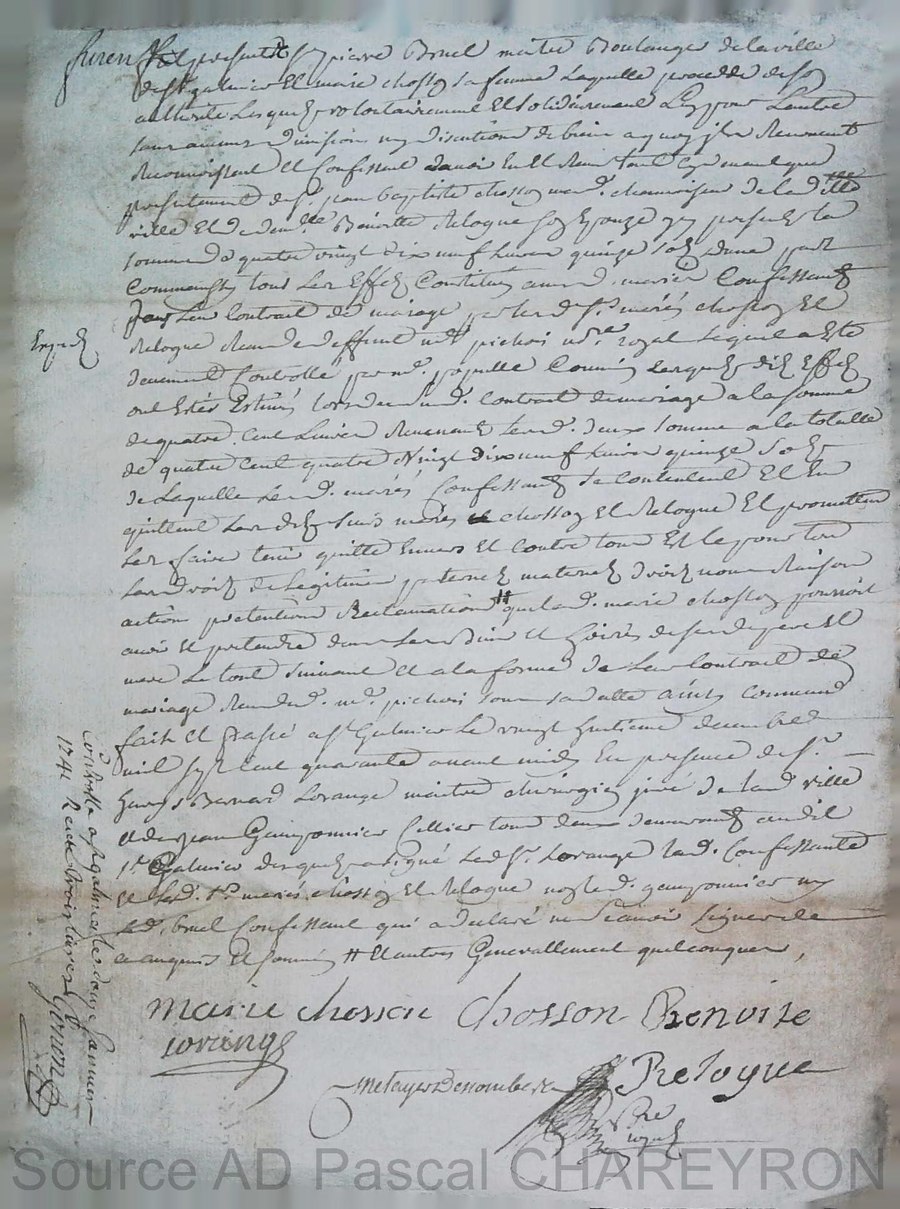 furent presents Sr pierre Bruel maitre Boulanger de la ville
de st galmier Et marie chosson sa femme laquelle procedde de son
authorité Lesquels volontairement Et solidairement L'un pour Lautre
sans aucune division ny discution de biens a quoy ils Renoncent
Reconnoissent Et Confessent avoir Eu Et Receu tout
presentement de Sr jean baptiste chosson mard. chamoiseur de lad. ville
ville Et de dem.lle Benoitte Relogue son Epouze presents la
somme de quatre vingt dix neuf Livres quinze sols dune part
tous les Effets Constitués auxd. mariés Confessants
dans Leur Contrat de mariage par lesd. Srs mariés chosson Et
Relogue Receu deffunt me pichon nore royal Lequel a Esté
deuement Controllé par mr. Commis Lesquels dits Effets
ont Estés Estimés lors dud. Contrat de mariage a la somme
de quatre Cent Livres Revenant Lesd. deux somme a la totalle
de quatre Cent quatre Vingt dix neuf Livres quinze sols
de Laquelle Lesd. mariés Confessants se Contentent Et En
quittent Lesdits Srs mariés chosson Et Relogue Et promettent
Les faire tenir quitte Envers Et Contre tous Et le pour tous
Les droits de Legitime paternels maternels droits noms Raison
action pretention Reclamation # que lad. marie chosson pourroit
avoir Et pretendre dans Les Biens Et hoiries de sesd. pere Et
mere Le tout suivant Et a la forme de Leur Contrat de
mariage Receu dud. me. pichon sous sa datte ainsy Convenu
fait Et passé a st Galmier Le vingt huitieme decembre
mil sept Cent quarante avant midy En presence de Sr.
Bernard Lorange maitre chirurgien juré de lad. ville
Et de sr jean Gaingonnier Cellier tous deux demeurants aud.
st. Galmier Lesquels a signé Led. Sr. Lorange Lad. Confessante
Et Lesd. Srs. mariés chosson Et Relogue non led. gaingonnier ny
Led. bruel Confessant qui a declaré ne scavoir signer de
ce enquis Et sommés # Et autres Generallement quelconques,
Expedié
Controllé a st galmier le douze janvier
1741 Receu trois livres
marie chosson
Chosson
Benoite
Relogue
lorange
Source AD Pascal CHAREYRON